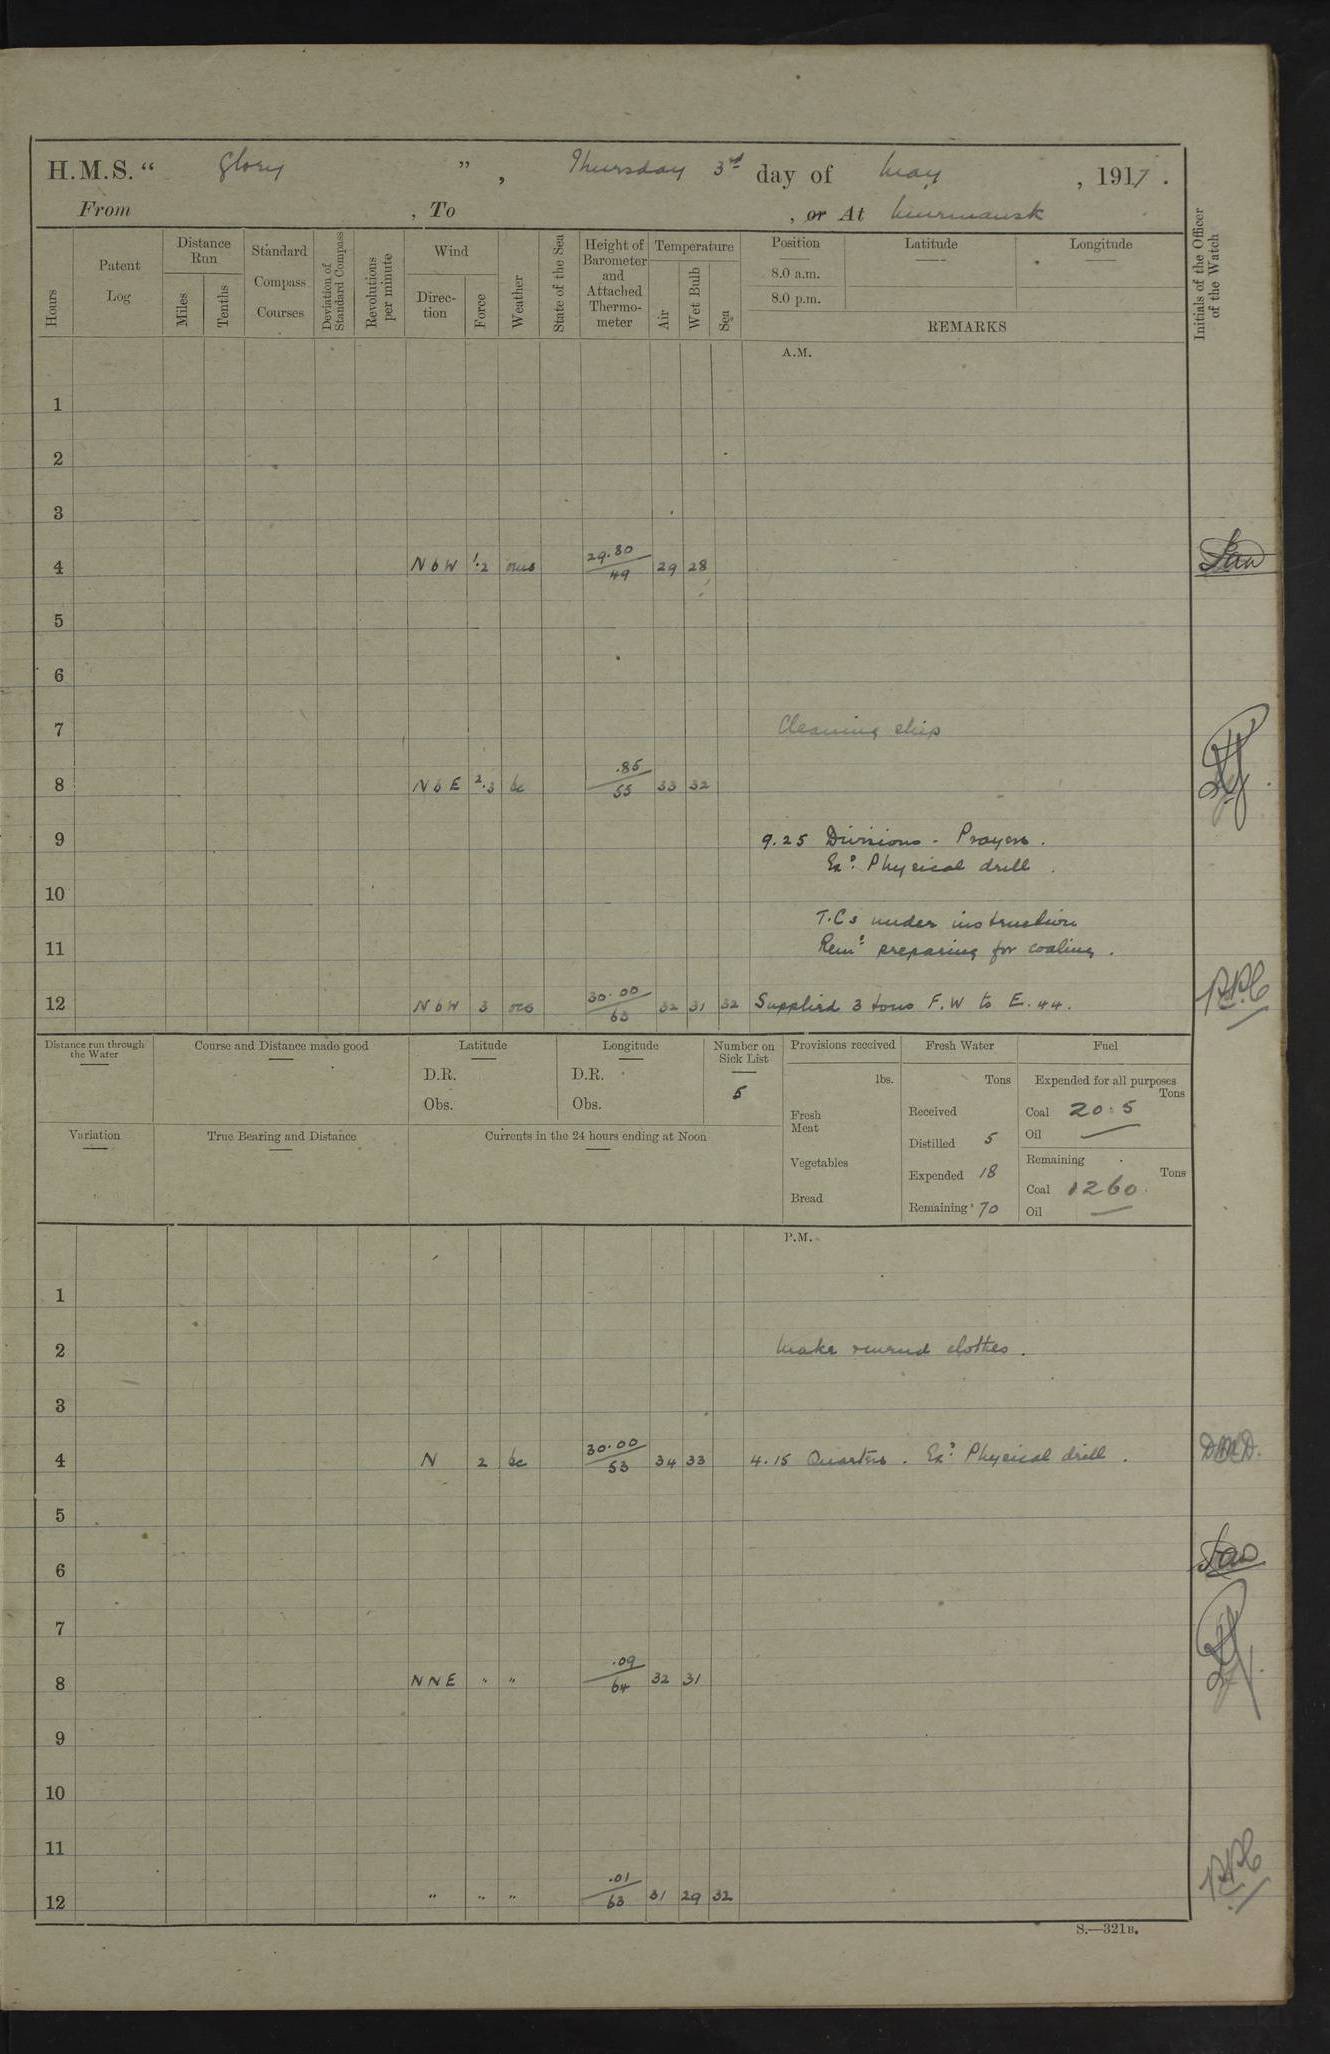 H.M.S. “ Glory ” , Thursday 3rd day of May , 1917 .
From , To , or At Murmansk
Hours
Patent Log
Distance Run
Miles
Tenths
Standard Compass Courses
Deviation of Standard Compass
Revolutions per minute
Wind
Direc-tion
Force
Weather
State of the Sea
Height of Barometer and Attached Thermo-meter
Temperature
Air
Wet Bulb
Sea
Position
8.0 a.m.
8.0 p.m.
Latitude
Longitude
REMARKS
Initials of the Officer of the Watch
A.M.
1
2
3
4 N b W 1.2 oms 29.80/49 29 28
5
6
7 Cleaning ship
8 N b E 2.3 bc .85/55 33 32
9 9.25 Divisions - Prayers .
Ex: Physical drill .
10
T.Cs under instruction
11 Rem: preparing for coaling .
12 N b W 3 ocs 30.00/63 32 31 32 Supplied 3 tons F.W to E.44. R.P.C
Distance run through the Water
Course and Distance made good
Latitude
D.R.
Obs.
Longitude
D.R.
Obs.
Number on Sick List
5
Provisions received
lbs.
Fresh Meat
Vegetables
Bread
Fresh Water
Tons
Received
Distilled 5
Expended 18
Remaining 70
Fuel
Expended for all purposes
Tons
Coal 20.5
Oil —
Remaining
Tons
Coal 1260
Oil —
Variation
True Bearing and Distance
Currents in the 24 hours ending at Noon
P.M.
1
2 Make & mend clothes .
3
4 N 2 bc 30.00/53 34 33 4.15 Quarters . Ex: Physical drill . DMD.
5
6
7
8 NNE " " .09/64 32 31
9
10
11
12 " " " .01/63 31 29 32 R.P.C
S.—321B.